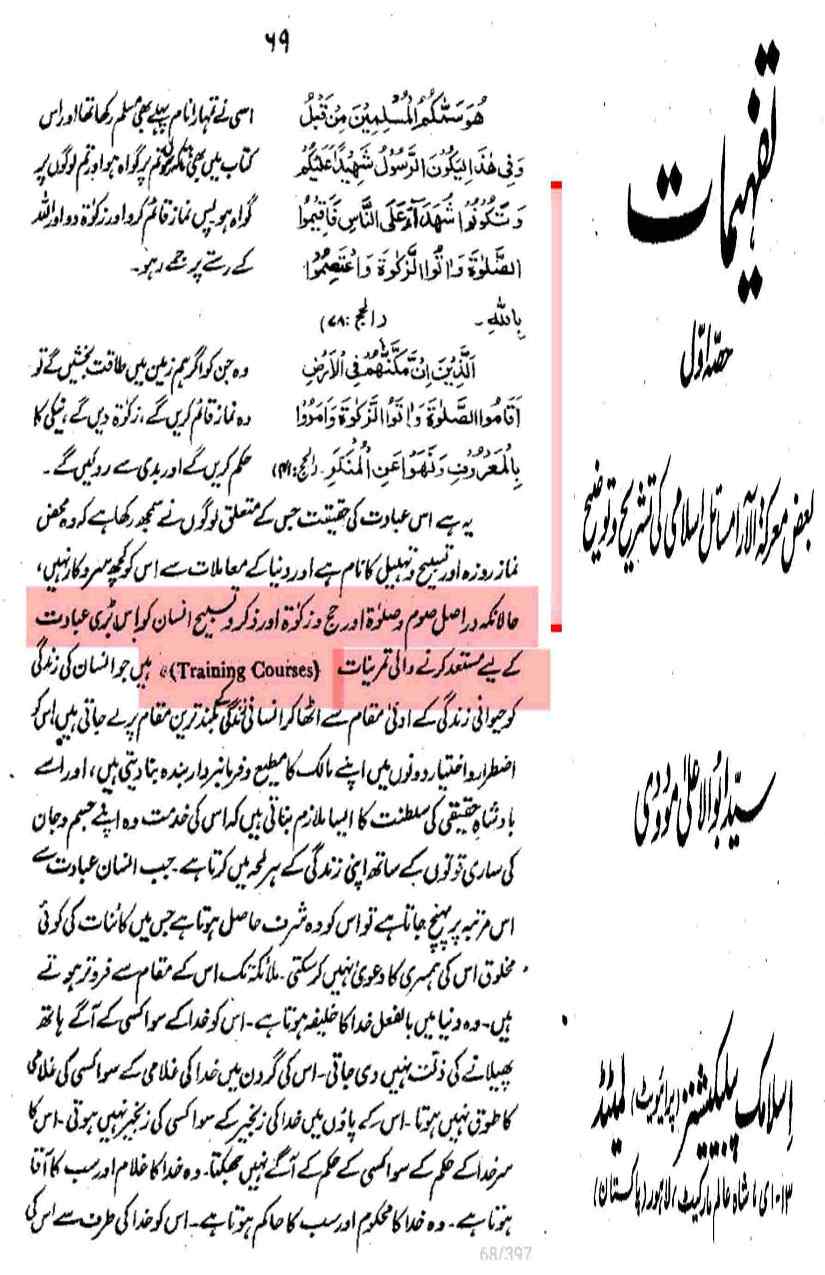 ۶۹
هُوَ سَمّٰىكُمُ الْمُسْلِمِيْنَ مِنْ قَبْلُ
وَفِيْ هٰذَا لِيَكُوْنَ الرَّسُوْلُ شَهِيْدًا عَلَيْكُمْ
وَتَكُوْنُوْا شُهَدَآءَ عَلَى النَّاسِ فَاَقِيْمُوا
الصَّلٰوةَ وَاٰتُوا الزَّكٰوةَ وَاعْتَصِمُوْا
بِاللّٰهِ ۔ (الحج : ۷۸)
اسی نے تمہارا نام پہلے بھی مسلم رکھا تھا اور اس
کتاب میں بھی تاکہ رسول تم پر گواہ ہو اور تم لوگوں پر
گواہ ہو پس نماز قائم کرو اور زکوٰۃ دو اور اللہ
کے رستے پر جمے رہو۔
اَلَّذِيْنَ اِنْ مَّكَّنّٰهُمْ فِي الْاَرْضِ
اَقَامُوا الصَّلٰوةَ وَاٰتَوُا الزَّكٰوةَ وَاَمَرُوْا
بِالْمَعْرُوْفِ وَنَهَوْا عَنِ الْمُنْكَرِ۔ (الحج : ۴۱)
وہ جن کو اگر ہم زمین میں طاقت بخشیں گے تو
وہ نماز قائم کریں گے، زکوٰۃ دیں گے، نیکی کا
حکم کریں گے اور بدی سے روکیں گے۔
یہ ہے اس عبادت کی حقیقت جس کے متعلق لوگوں نے سمجھ رکھا ہے کہ وہ محض
نماز روزہ اور تسبیح و تہلیل کا نام ہے اور دنیا کے معاملات سے اس کو کچھ سروکار نہیں،
حالانکہ دراصل صوم و صلوٰۃ اور حج و زکوٰۃ اور ذکر و تسبیح انسان کو اس بڑی عبادت
کے لیے مستعد کرنے والی تمرینات (Training Courses) ہیں جو انسان کی زندگی
کو حیوانی زندگی کے ادنیٰ مقام سے اٹھا کر انسانی زندگی کے بلند ترین مقام پر لے جاتی ہیں، اس کو
اضطرار و اختیار دونوں میں اپنے مالک کا مطیع و فرمانبردار بندہ بنا دیتی ہیں، اور اسے
بادشاہِ حقیقی کی سلطنت کا ایسا ملازم بناتی ہیں کہ اس کی خدمت وہ اپنے جسم و جان
کی ساری قوتوں کے ساتھ اپنی زندگی کے ہر لمحہ میں کرتا ہے۔ جب انسان عبادت سے
اس مرتبہ پر پہنچ جاتا ہے تو اس کو وہ شرف حاصل ہوتا ہے جس میں کائنات کی کوئی
مخلوق اس کی ہمسری کا دعویٰ نہیں کر سکتی۔ ملائکہ تک اس کے مقام سے فروتر ہوتے
ہیں۔ وہ دنیا میں بالفعل خدا کا خلیفہ ہوتا ہے۔ اس کو خدا کے سوا کسی کے آگے ہاتھ
پھیلانے کی ذلت نہیں دی جاتی۔ اس کی گردن میں خدا کی غلامی کے سوا کسی کی غلامی
کا طوق نہیں ہوتا۔ اس کے پاؤں میں خدا کی زنجیر کے سوا کسی کی زنجیر نہیں ہوتی۔ اس کا
سر خدا کے حکم کے سوا کسی کے حکم کے آگے نہیں جھکتا۔ وہ خدا کا غلام اور سب کا آقا
ہوتا ہے۔ وہ خدا کا محکوم اور سب کا حاکم ہوتا ہے۔ اس کو خدا کی طرف سے اس کی
68/397
تفہیمات
حصہ اوّل
بعض معرکۃ الآرا مسائل اسلامی کی تشریح و توضیح
سیّد ابوالاعلیٰ مودودی
اسلامک پبلیکیشنز (پرائیویٹ) لمیٹڈ
۱۳-ای، شاہ عالم مارکیٹ، لاہور (پاکستان)